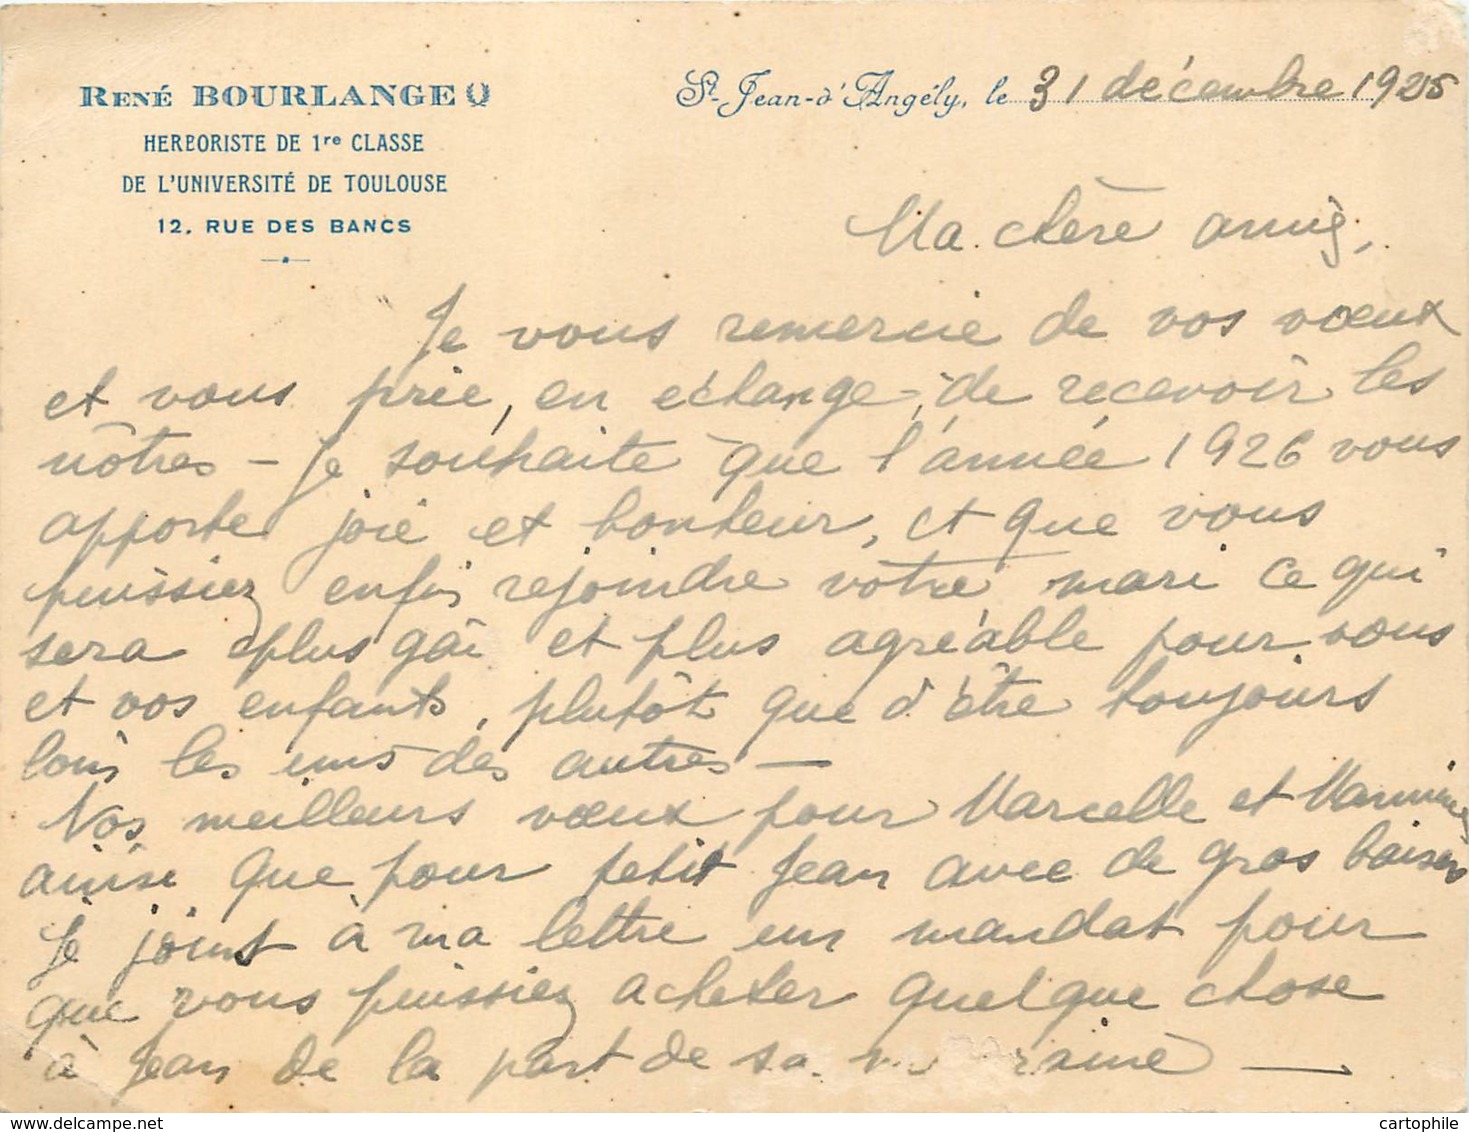 RENÉ BOURLANGE
HERBORISTE DE 1re CLASSE
DE L'UNIVERSITÉ DE TOULOUSE
12, RUE DES BANCS
St-Jean-d'Angély, le 31 décembre 1925
Ma chère amie,
Je vous remercie de vos vœux
et vous prie, en échange, de recevoir les
nôtres - Je souhaite que l'année 1926 vous
apporte joie et bonheur, et que vous
puissiez enfin rejoindre votre mari ce qui
sera plus gai et plus agréable pour vous
et vos enfants, plutôt que d'être toujours
loin les uns des autres —
Nos meilleurs vœux pour Marcelle et
ainsi que pour petit Jean avec de gros baisers
Je joint à ma lettre un mandat pour
que vous puissiez acheter quelque chose
à Jean de la part de sa
cartophile